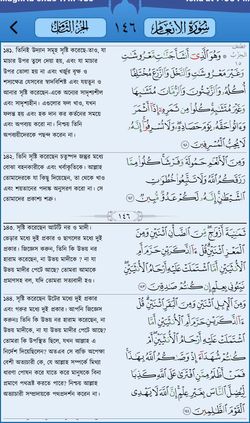 سورة الأنعام
١٤٦
الجزء الثامن
১৪১. তিনিই উদ্যান সমূহ সৃষ্টি করেছে-তাও, যা
মাচার উপর তুলে দেয়া হয়, এবং যা মাচার
উপর তোলা হয় না এবং খর্জুর বৃক্ষ ও
শস্যক্ষেত্র যেসবের স্বাদবিশিষ্ট এবং যয়তুন ও
আনার সৃষ্টি করেছেন-একে অন্যের সাদৃশ্যশীল
এবং সাদৃশ্যহীন। এগুলোর ফল খাও, যখন
ফলন্ত হয় এবং হক দান কর কর্তনের সময়ে
এবং অপব্যয় করো না। নিশ্চয় তিনি
অপব্যয়ীদেরকে পছন্দ করেন না।
وَهُوَ ٱلَّذِىٓ أَنشَأَ جَنَّـٰتٍ مَّعْرُوشَـٰتٍ
وَغَيْرَ مَعْرُوشَـٰتٍ وَٱلنَّخْلَ وَٱلزَّرْعَ مُخْتَلِفًا
أُكُلُهُۥ وَٱلزَّيْتُونَ وَٱلرُّمَّانَ مُتَشَـٰبِهًا
وَغَيْرَ مُتَشَـٰبِهٍ كُلُوا۟ مِن ثَمَرِهِۦٓ إِذَآ أَثْمَرَ
وَءَاتُوا۟ حَقَّهُۥ يَوْمَ حَصَادِهِۦ وَلَا تُسْرِفُوٓا۟ إِنَّهُۥ
لَا يُحِبُّ ٱلْمُسْرِفِينَ
১৪২. তিনি সৃষ্টি করেছেন চতুষ্পদ জন্তুর মধ্যে
বোঝা বহনকারীকে এবং খর্বাকৃতিকে। আল্লাহ
তোমাদেরকে যা কিছু দিয়েছেন, তা থেকে খাও
এবং শয়তানের পদাঙ্ক অনুসরণ করো না। সে
তোমাদের প্রকাশ্য শত্রু।
وَمِنَ ٱلْأَنْعَـٰمِ حَمُولَةً وَفَرْشًا كُلُوا۟ مِمَّا
رَزَقَكُمُ ٱللَّهُ وَلَا تَتَّبِعُوا۟ خُطُوَٰتِ
ٱلشَّيْطَـٰنِ إِنَّهُۥ لَكُمْ عَدُوٌّ مُّبِينٌ
١٤٦
১৪৩. সৃষ্টি করেছেন আটটি নর ও মাদী।
ভেড়ার মধ্যে দুই প্রকার ও ছাগলের মধ্যে দুই
প্রকার। জিজ্ঞেস করুন, তিনি কি উভয় নর
হারাম করেছেন, না উভয় মাদীকে ? না যা
উভয় মাদীর পেটে আছে? তোমরা আমাকে
প্রমাণসহ বল, যদি তোমরা সত্যবাদী হও।
ثَمَـٰنِيَةَ أَزْوَٰجٍ مِّنَ ٱلضَّأْنِ ٱثْنَيْنِ وَمِنَ
ٱلْمَعْزِ ٱثْنَيْنِ قُلْ ءَآلذَّكَرَيْنِ حَرَّمَ أَمِ
ٱلْأُنثَيَيْنِ أَمَّا ٱشْتَمَلَتْ عَلَيْهِ أَرْحَامُ ٱلْأُنثَيَيْنِ
نَبِّـُٔونِى بِعِلْمٍ إِن كُنتُمْ صَـٰدِقِينَ
১৪৪. সৃষ্টি করেছেন উটের মধ্যে দুই প্রকার
এবং গরুর মধ্যে দুই প্রকার। আপনি জিজ্ঞেস
করুনঃ তিনি কি উভয় নর হারাম করেছেন, না
উভয় মাদীকে, না যা উভয় মাদীর পেটে আছে?
তোমরা কি উপস্থিত ছিলে, যখন আল্লাহ এ
নির্দেশ দিয়েছিলেন? অতএব সে ব্যক্তি অপেক্ষা
বেশী অত্যাচারী কে, যে আল্লাহ সম্পর্কে মিথ্যা
ধারণা পোষন করে যাতে করে মানুষকে বিনা
প্রমাণে পথভ্রষ্ট করতে পারে? নিশ্চয় আল্লাহ
অত্যাচারী সম্প্রদায়কে পথপ্রদর্শন করেন না।
وَمِنَ ٱلْإِبِلِ ٱثْنَيْنِ وَمِنَ ٱلْبَقَرِ ٱثْنَيْنِ قُلْ
ءَآلذَّكَرَيْنِ حَرَّمَ أَمِ ٱلْأُنثَيَيْنِ أَمَّا
ٱشْتَمَلَتْ عَلَيْهِ أَرْحَامُ ٱلْأُنثَيَيْنِ أَمْ
كُنتُمْ شُهَدَآءَ إِذْ وَصَّىٰكُمُ ٱللَّهُ بِهَـٰذَا
فَمَنْ أَظْلَمُ مِمَّنِ ٱفْتَرَىٰ عَلَى ٱللَّهِ كَذِبًا
لِّيُضِلَّ ٱلنَّاسَ بِغَيْرِ عِلْمٍ إِنَّ ٱللَّهَ لَا يَهْدِى
ٱلْقَوْمَ ٱلظَّـٰلِمِينَ